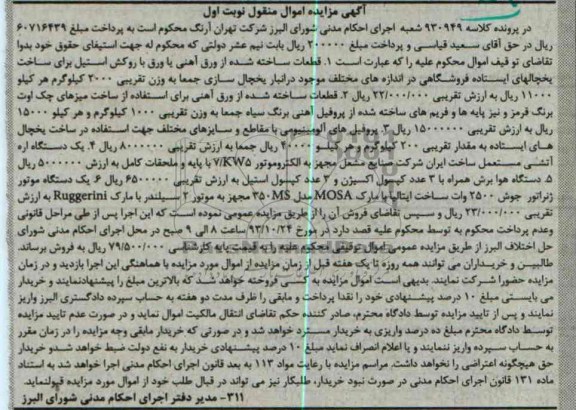 آگهی مزایده اموال منقول نوبت اول
در پرونده کلاسه ۹۳۰۹۴۹ شعبه اجرای احکام مدنی شورای البرز شرکت تهران آرنگ محکوم است به پرداخت مبلغ ۶۰۷۱۶۴۳۹
ریال در حق آقای سعید قیاسی و پرداخت مبلغ ۲۰۰۰۰۰ ریال بابت نیم عشر دولتی که محکوم له جهت استیفای حقوق خود بدوا
تقاضای تو قیف اموال محکوم علیه را که عبارت است ۱. قطعات ساخته شده از ورق آهنی یا ورق با روکش استیل برای ساخت
یخچالهای ایستاده فروشگاهی در اندازه های مختلف موجود درانبار یخچال سازی جمعا به وزن تقریبی ۲۰۰۰ کیلوگرم هر کیلو
۱۱۰۰۰ ریال به ارزش تقریبی ۲۲/۰۰۰/۰۰۰ ریال ۲. قطعات ساخته شده از ورق آهنی برای استفاده از ساخت میزهای چک اوت
برنگ قرمز و نیز پایه ها و فریم های ساخته شده از پروفیل آهنی برنگ سیاه جمعا به وزن تقریبی ۱۰۰۰ کیلوگرم و هر کیلو ۱۵۰۰۰
ریال به ارزش تقریبی ۱۵۰۰۰۰۰۰ ریال ۳. پروفیل های آلومینیومی با مقاطع و سایزهای مختلف جهت استفاده در ساخت یخچال
های ایستاده به مقدار تقریبی ۲۰۰ کیلوگرم و هر کیلو ۴۰۰۰۰ ریال جمعا به ارزش تقریبی ۸۰۰۰۰۰۰ ریال ۴. یک دستگاه اره
آتشی مستعمل ساخت ایران شرکت صنایع مجهز به الکتروموتور ۷/KW۵ با پایه و ملحقات کامل به ارزش ۵۰۰۰۰۰۰ ریال
۵. دستگاه هوا برش همراه با ۳ عدد کپسول اکسیژن و ۲ عدد کپسول استیل به ارزش تقریبی ۶۵۰۰۰۰۰ ریال ۶. یک دستگاه موتور
ژنراتور جوش ۲۵۰۰ وات ساخت ایتالیا با مارک MOSA مدل ۳۵۰MS مجهز به موتور ۲ سیلندر با مارک Ruggerini به ارزش
تقریبی ۲۳/۰۰۰/۰۰۰ ریال و سپس تقاضای فروش آن را از طریق مزایده عمومی نموده است که این اجرا پس از طی مراحل قانونی
وعدم پرداخت محکوم به توسط محکوم علیه قصد دارد در مورخ ۹۳/۱۰/۲۴ ساعت ۸ الی ۹ صبح در محل اجرای احکام مدنی شورای
حل اختلاف البرز از طریق مزایده عمومی اموال توقیفی محکوم علیه را به قیمت پایه کارشناسی ۷۹/۵۰۰/۰۰۰ ریال به فروش برساند.
طالبین و خریداران می توانند همه روزه تا یک هفته قبل از زمان مزایده از اموال مورد مزایده با هماهنگی این اجرا بازدید و در زمان
مزایده حضورا شرکت نمایند. بدیهی است اموال مزایده به کسی فروخته خواهد شد که بالاترین مبلغ را پیشنهادنمایند و خریدار
می بایستی مبلغ ۱۰ درصد پیشنهادی خود را نقدا پرداخت و مابقی را ظرف مدت دو هفته به حساب سپرده دادگستری البرز واریز
نمایند و پس از تایید مزایده توسط دادگاه محترم، صادر کننده حکم تقاضای انتقال مالکیت اموال نماید و در صورت عدم تایید مزایده
توسط دادگاه محترم مبلغ ده درصد واریزی به خریدار مسترد خواهد شد و در صورتی که خریدار مابقی وجه مزایده را در زمان مقرر
به حساب سپرده واریز ننمایند و یا اعلام انصراف نماید مبلغ ۱۰ درصد پیشنهادی خریدار به نفع دولت ضبط خواهد شدو خریدار
حق هیچگونه اعتراضی را نخواهد داشت. مراسم مزایده با رعایت مواد ۱۱۳ به بعد قانون اجرای احکام مدنی اجرا خواهد شد به استناد
ماده ۱۳۱ قانون اجرای احکام مدنی در صورت نبود خریدار، طلبکار نیز می تواند در قبال طلب خود از اموال مورد مزایده قبولنماید.
۳۱۱- مدیر دفتر اجرای احکام مدنی شورای البرز